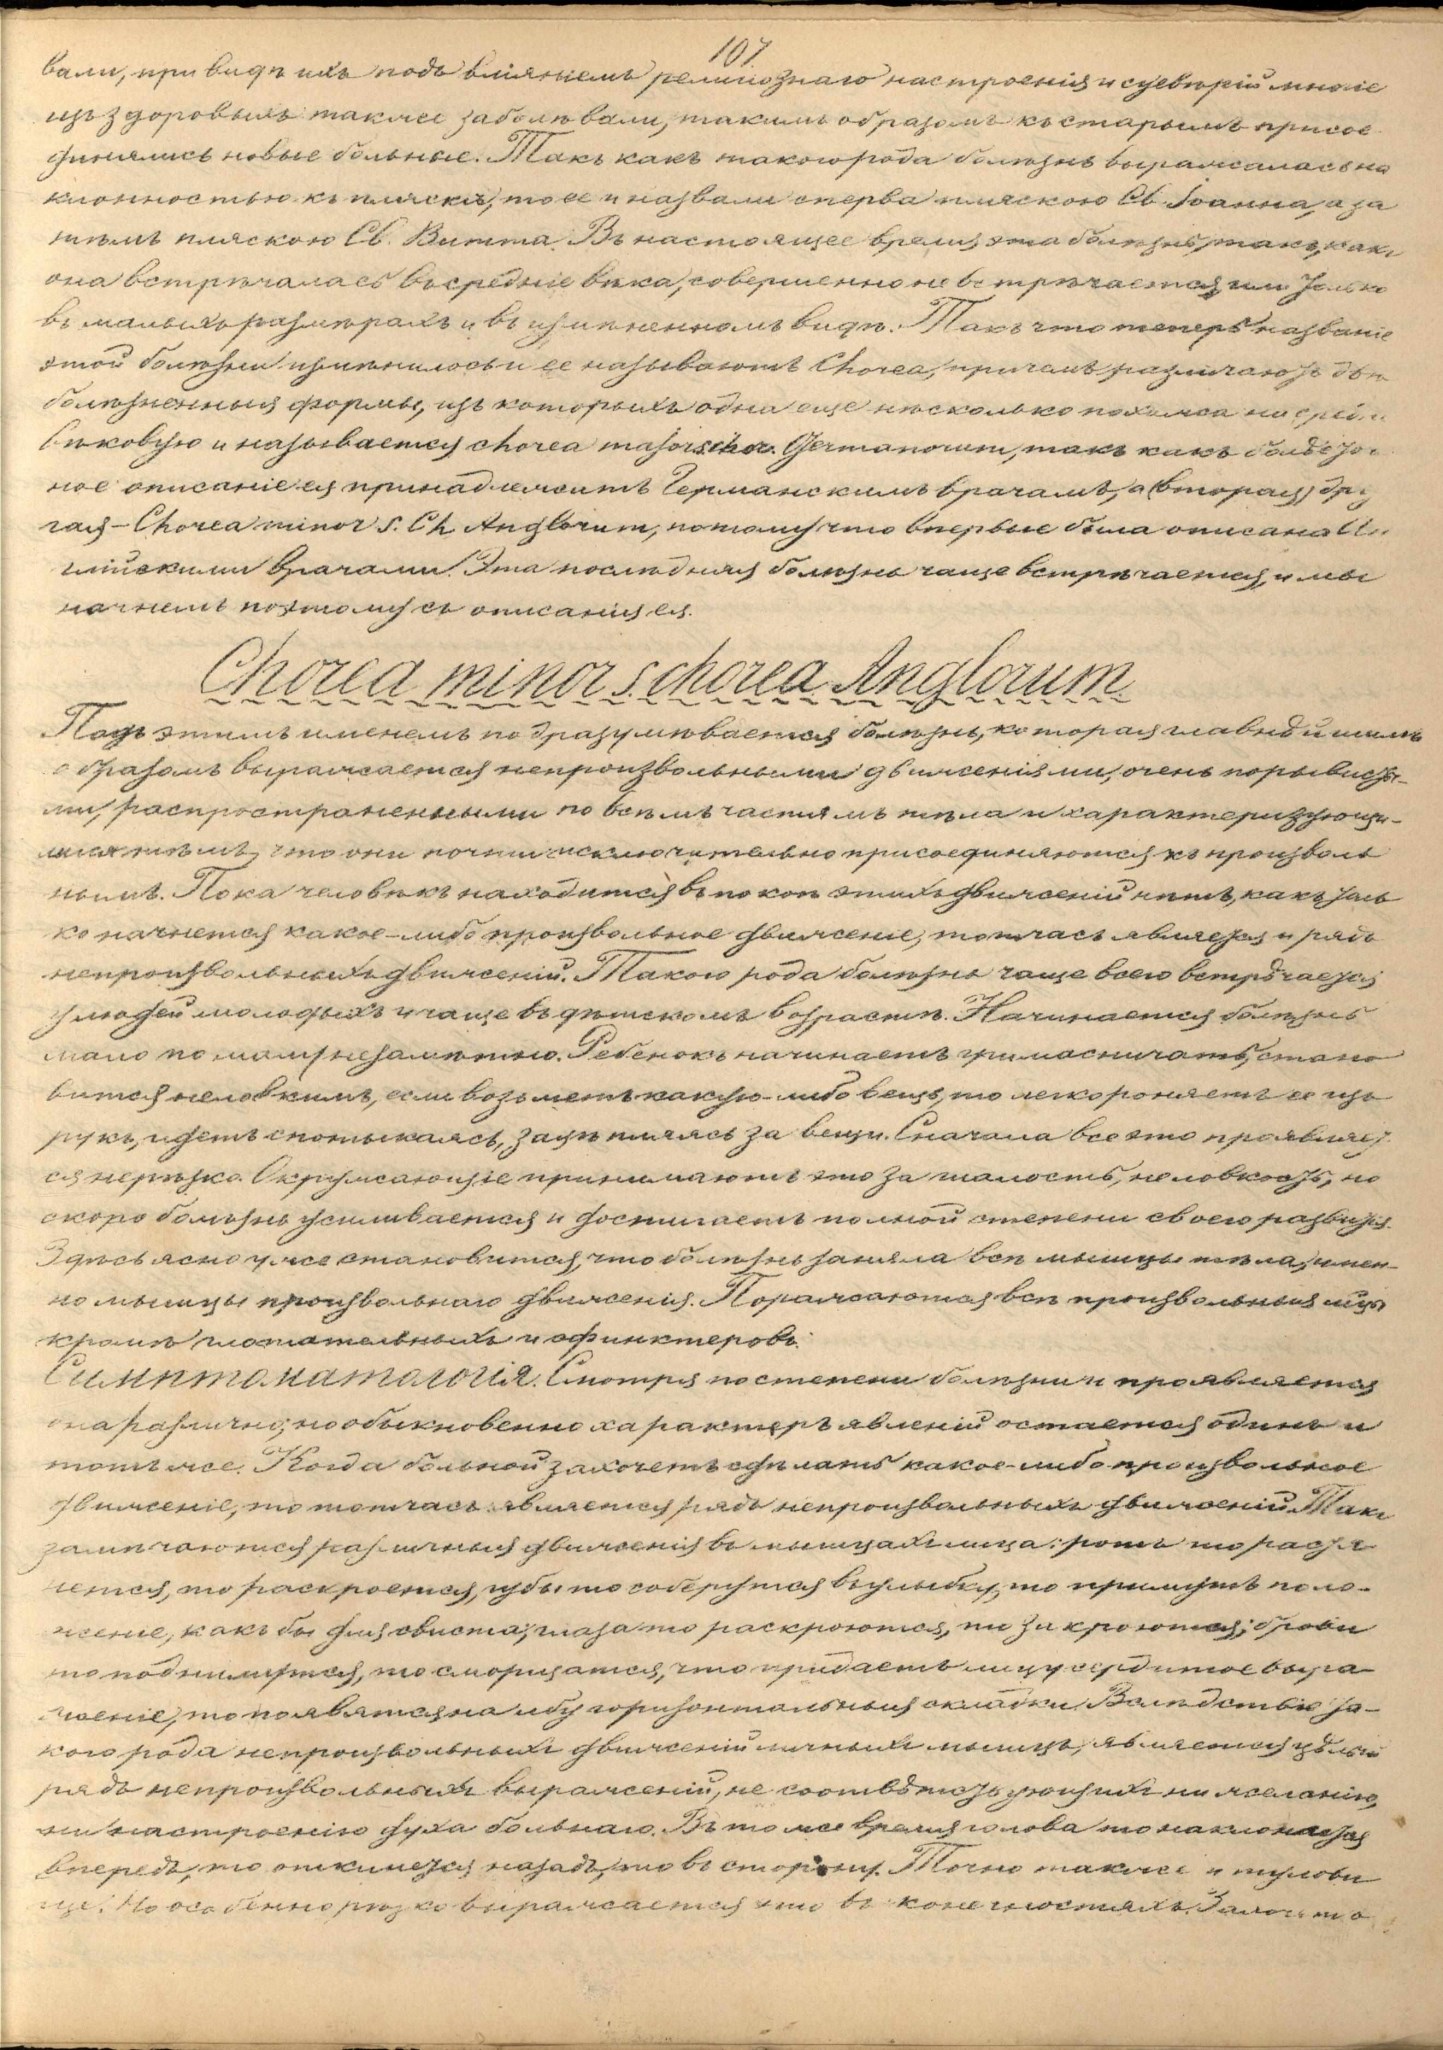 107.
вали, при видѣ ихъ подъ вліяніемъ религіознаго настроенія и суевѣрій многіе
изъ здоровыхъ также заболѣвали, такимъ образомъ къ старымъ присое
динялись новые больные. Такъ какъ такого рода болѣзнь выражалась на
клонностью къ пляскѣ, то ее и назвали сперва пляскою Св. Іоанна, а за
тѣмъ пляскою Св. Витта. Въ настоящее время эта болѣзнь, такъ, какъ
она встрѣчалась въ средніе вѣка, совершенно не встрѣчается, или только
въ малыхъ размѣрахъ и въ измѣненномъ видѣ. Такъ что теперь названіе
этой болѣзни измѣнилось и ее называютъ Chorea, причемъ различаютъ двѣ
болѣзненныя формы, изъ которыхъ одна еще нѣсколько похожа на средне
вѣковую и называется chorea major s. chor. Germanorum, такъ какъ болѣе точ
ное описаніе ея принадлежитъ Германскимъ врачамъ, а (вторая) дру
гая – Chorea minor s. Ch. Anglorum, потому что впервые была описана Ан
глійскими врачами. Эта послѣдняя болѣзнь чаще встрѣчается, и мы
начнемъ поэтому съ описанія ея.
Chorea minor s. chorea Anglorum
Подъ этимъ именемъ подразумѣвается болѣзнь, которая главнѣйшимъ
образомъ выражается непроизвольными движеніями, очень порывисты–
ми, распространенными по всѣмъ частямъ тѣла и характеризующи–
мися тѣмъ, что они почти исключительно присоединяются къ произволь
нымъ. Пока человѣкъ находится въ покоѣ этихъ движеній нѣтъ, какъ толь
ко начнется какое–либо произвольное движеніе, тотчасъ является и рядъ
непроизвольныхъ движеній. Такого рода болѣзнь чаще всего встрѣчается
у людей молодыхъ и чаще въ дѣтскомъ возрастѣ. Начинается болѣзнь
мало по малу, незамѣтно. Ребенокъ начинаетъ гримасничать, стано
вится неловкимъ, если возьметъ какую–либо вещь, то легко роняетъ ее изъ
рукъ, идетъ спотыкаясь, зацѣпляясь за вещи. Сначала все это проявляет
ся нерѣзко. Окружающіе принимаютъ это за шалость, неловкость, но
скоро болѣзнь усиливается и достигаетъ полной степени своего развитія.
Здѣсь ясно уже становится, что болѣзнь заняла всѣ мышцы тѣла, имен–
но мышцы произвольнаго движенія. Поражаются всѣ произвольныя мцы
кромѣ глотательныхъ и сфинктеровъ.
Симптоматологія. Смотря по степени болѣзни и проявляется
она различно; но обыкновенно характеръ явленій остается одинъ и
тотъ же. Когда больной захочетъ сдѣлать какое–либо произвольное
движеніе, то тотчасъ является рядъ непроизвольныхъ движеній. Такъ
замѣчаются различныя движенія въ мышцахъ лица: ротъ то растя
нется, то раскроется, губы то соберутся въ улыбку, то примутъ поло–
женіе, какъ бы для свиста; глаза то раскроются, то закроются; брови
то поднимутся, то сморщатся, что придаетъ лицу сердитое выра
женіе, то появятся на лбу горизонтальныя складки. Вслѣдствіе та–
кого рода непроизвольныхъ движеній личныхъ мышцъ, является цѣлый
рядъ непроизвольныхъ выраженій, не соотвѣтствующихъ ни желанію,
ни настроенію духа больнаго. Въ то же время голова то наклонится
впередъ, то откинется назадъ, то въ сторону. Точно также и тулови
ще. Но особенно рѣзко выражается это въ конечностяхъ.